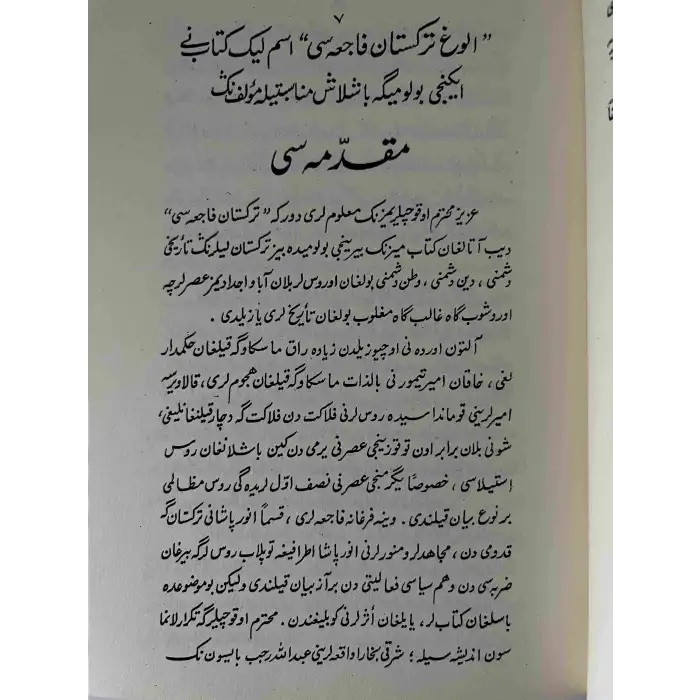 ۷
” الوغ ترکستان فاجعه سی“ اسم لیک کتاب نے
ایکنجی بولومیگه باشلاش مناسبتیله مؤلف نگ
مقدّمه سی
عزیز محترم اوقوچیلریمزنک معلوم لری دورکه ” ترکستان فاجعه سی“
دیب آتالغان کتاب میزنک بیرینجی بولومیده بیز ترکستان لیلرنک تأریخی
دشمنی ، دین دشمنی ، وطن دشمنی بولغان اوروس لر بلان آبا و اجدادیمز عصرلرچه
اوردشوب گاه غالب گاه مغلوب بولغان تأریخ لری یازیلدی .
آلتون اورده نی اوچیوز یلدن زیاده راق ماسکاوگه قیلغان حکمدار
لغی ، خاقان امیرتیمور نی بالذات ماسکاوگه قیلغان هجوم لری ، قالاویرسه
امیرلرینی قوماندا سیده روس لرنی فلاکت دن فلاکت گه دچار قیلنغانلیغی،
شونی بلان برابر اون توقوزینجی عصرنی یرمی دن کین باشلانغان روس
استیلاسی ، خصوصاً یگرمنجی عصرنی نصف اوّل لریده گی روس مظالمی
بر نوع بیان قیلندی . وینه فرغانه فاجعه لری ، قسماً انورپاشانی ترکستان گه
قدومی دن ، مجاهدلر و منورلرنی انور پاشا اطرافیغه توپلاب روس لرگه بیرغان
ضربه سی دن و هم سیاسی فعالیتی دن بر آز بیان قیلندی ولیکن بو موضوعده
باسلغان کتاب لر، یایلغان أثر لرنی کوبلیغندن . محترم اوقوچیلرگه تکرارلانما
سون اندیشه سیله ؛ شرقی بخارا واقعه لرینی عبدالله رجب بایسون نک